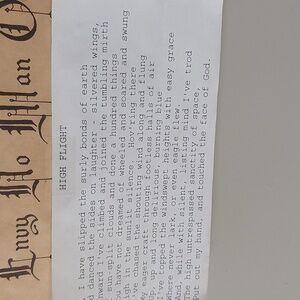 Envy No Man O
HIGH FLIGHT
I have slipped the surly bonds of earth
d danced the sides on laughter - silvered wings,
nward I've climbed and joined the tumbling mirth
clouds and done hundred things
ou have not dreamed of wheeled and soared and swung
igh in the sunlit silence. Hov'ring there
've chased the shouting wind along and flung
y eager craft through footless halls of air
up the long delirious burning blue
've topped the windswept heights with easy grace
ere never lark, or even eagle flew
And, while with silent, lifting mind I've trod
he high untrespassed sanctity of space,
Put out my hand, and touched the face of God.